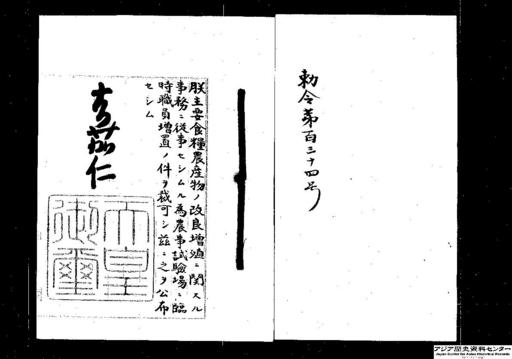 勅令第百三十四号
朕主要食糧農産物ノ改良増殖ニ関スル
事務ニ従事セシムル為農事試験場ニ臨
時職員増置ノ件ヲ裁可シ茲ニ之ヲ公布
セシム
嘉仁
天皇
御璽
アジア歴史資料センター
Japan Center for Asian Historical Records